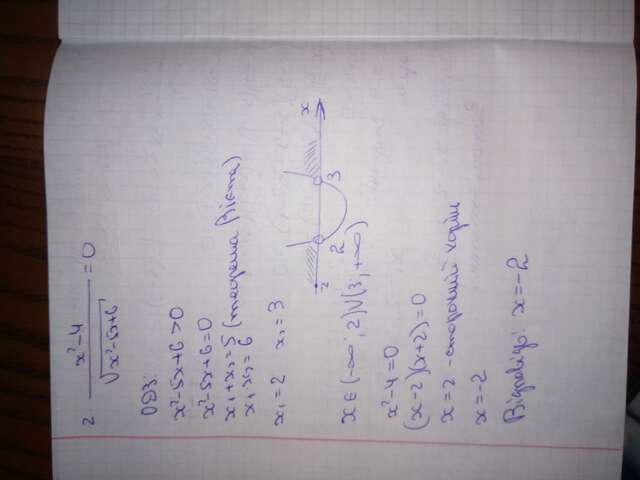 2 x²-4/√x²-5x+6 = 0
ОДЗ:
x²-5x+6>0
x²-5x+6=0
x₁+x₂=5 (теорема Вієта)
x₁x₂=6
x₁=2 x₂=3
2 3 x
x∈(-∞; 2)∪(3; +∞)
x²-4=0
(x-2)(x+2)=0
x=2 -сторонній корінь
x=-2
Відповідь: x=-2